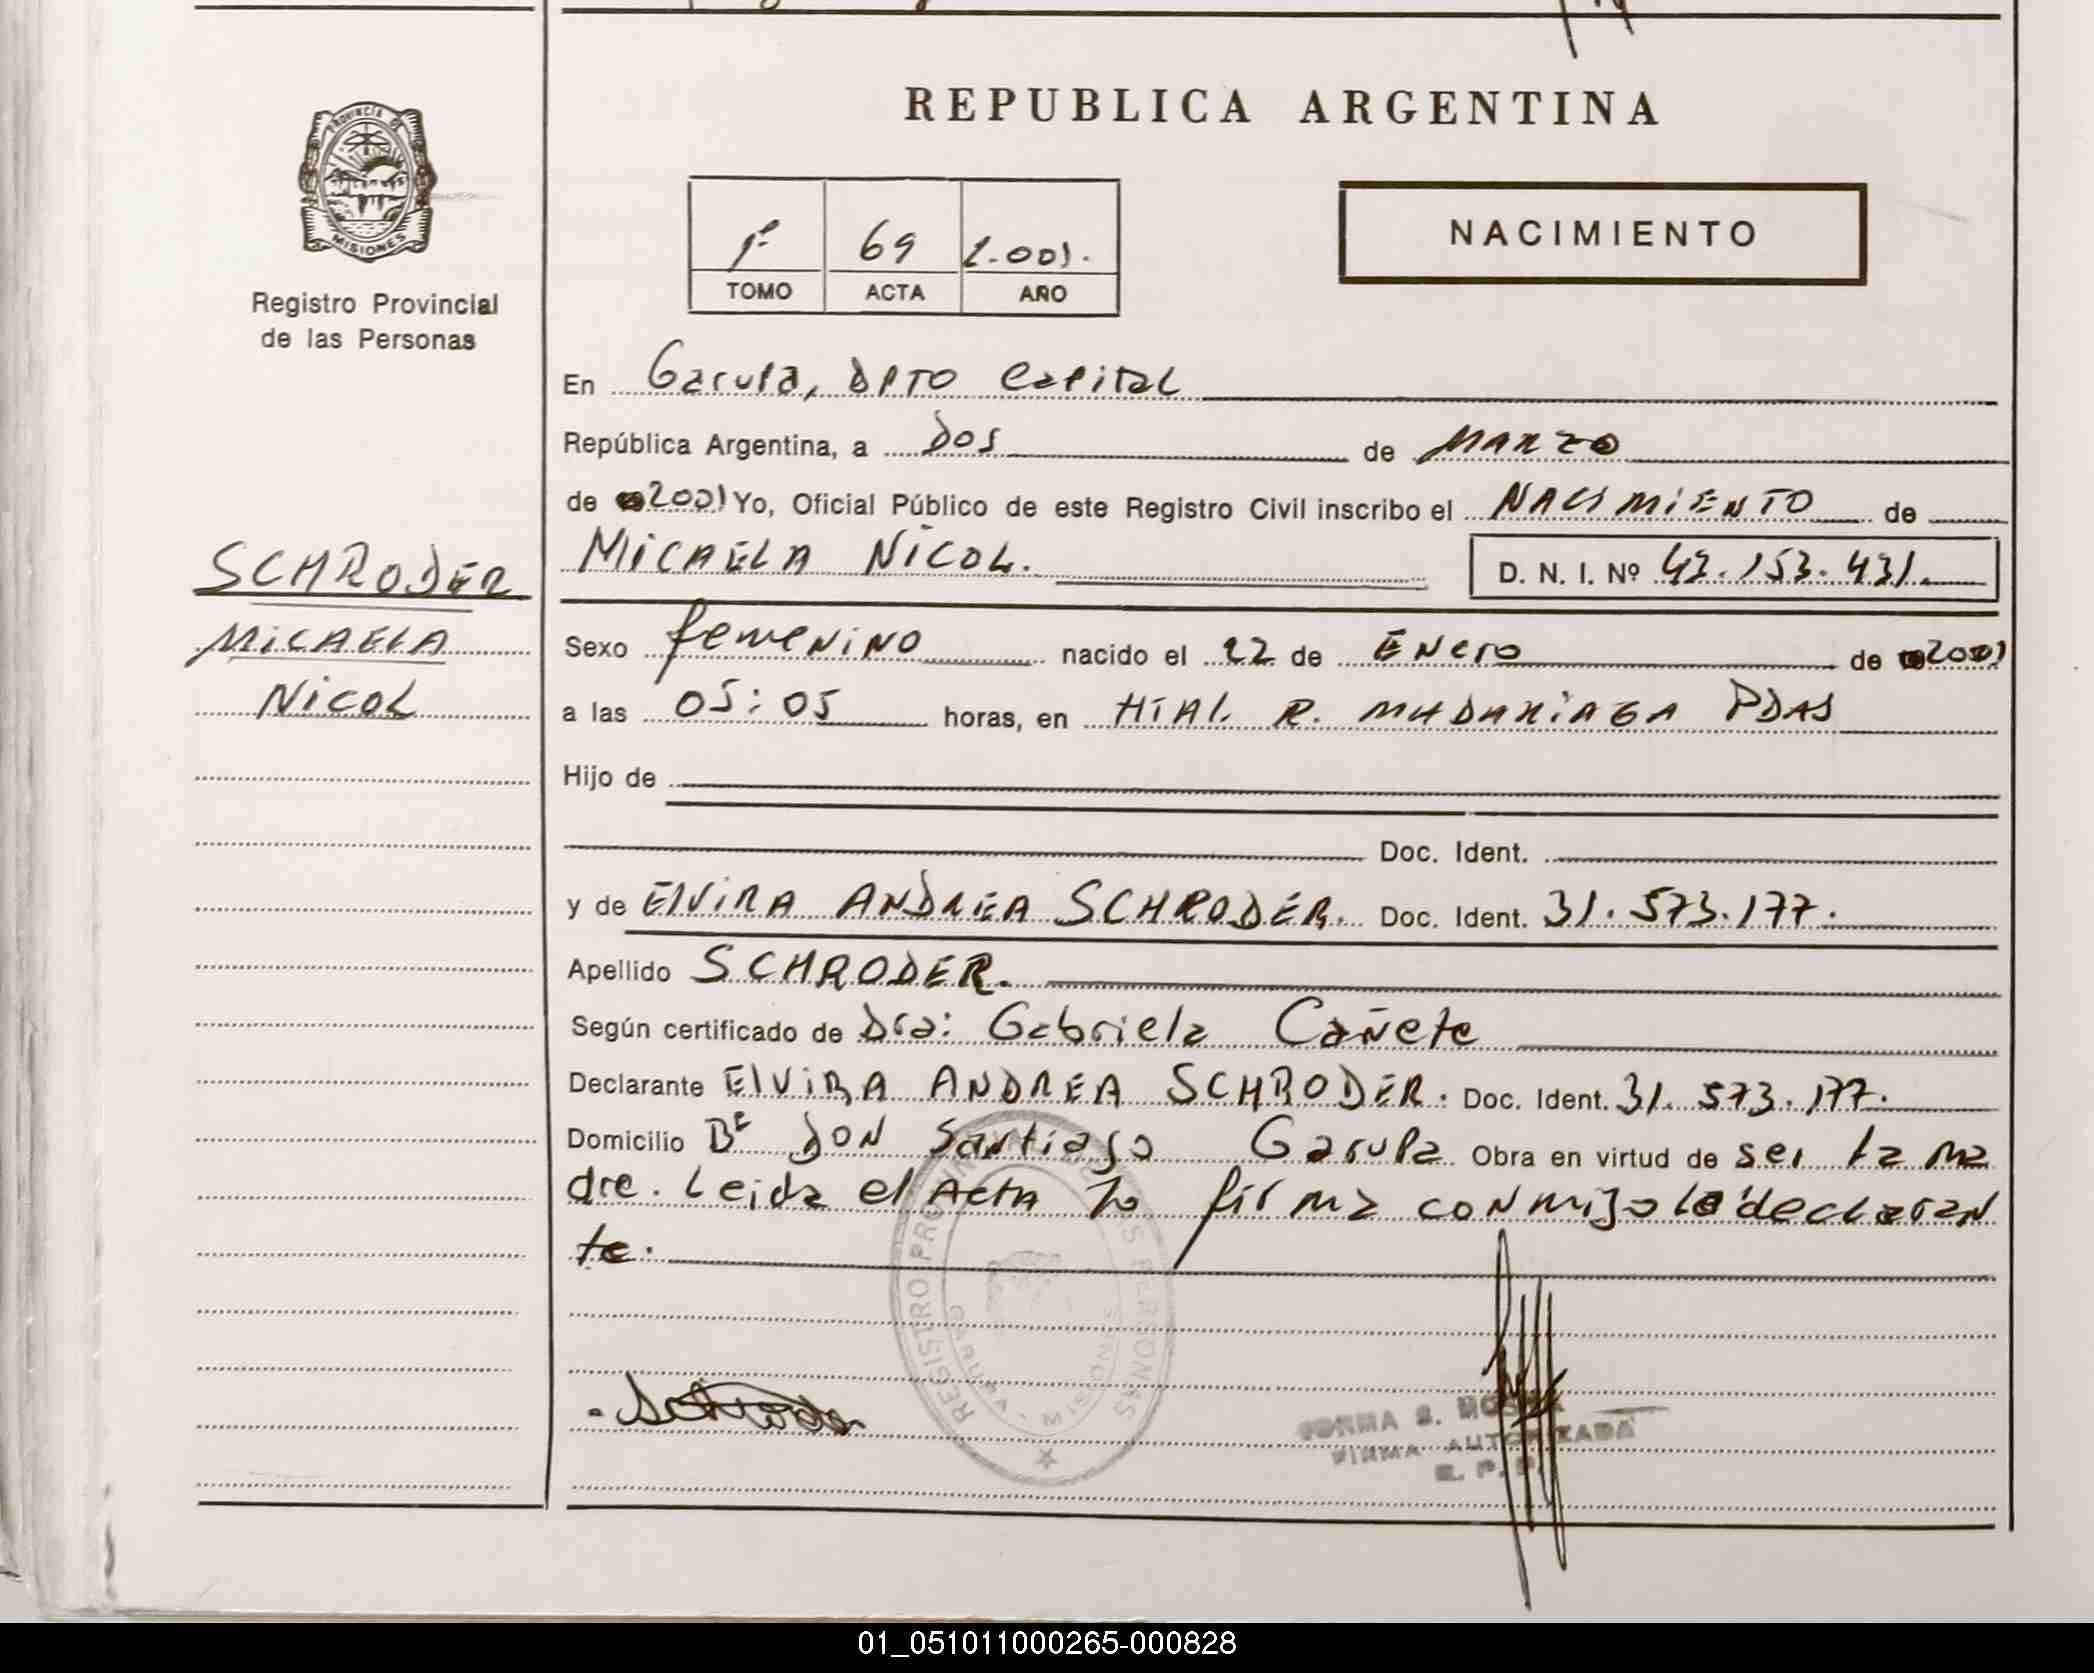 REPUBLICA ARGENTINA
PROVINCIA DE
MISIONES
Registro Provincial
de las Personas
1º 69 2.001.
TOMO ACTA AÑO
NACIMIENTO
En Garupa, DPTO Capital
República Argentina, a Dos de MARZO
de 2001 Yo, Oficial Público de este Registro Civil inscribo el NACIMIENTO de
MICAELA NICOL.
D. N. I. Nº 43.153.431.
SCHRODER
MICAELA
NICOL
Sexo femENINO nacido el 22 de ENero de 2001
a las 05:05 horas, en HTAL. R. MADARIAGA PDAS
Hijo de
Doc. Ident.
y de ElVIRA ANDREA SCHRODER. Doc. Ident. 31.573.177.
Apellido SCHRODER.
Según certificado de Dra: Gabriela Cañete
Declarante ElVIRA ANDREA SCHRODER. Doc. Ident. 31.573.177.
Domicilio Bº DON Santiago Garupa Obra en virtud de ser la ma
dre. Leida el ActA lo firma conmigo la declaran
te.
REGISTRO PROVINCIAL DE LAS PERSONAS
GARUPA - MISIONES
Schroder
NORMA S.
FIRMA AUTORIZADA
R. P. P.
01_051011000265-000828